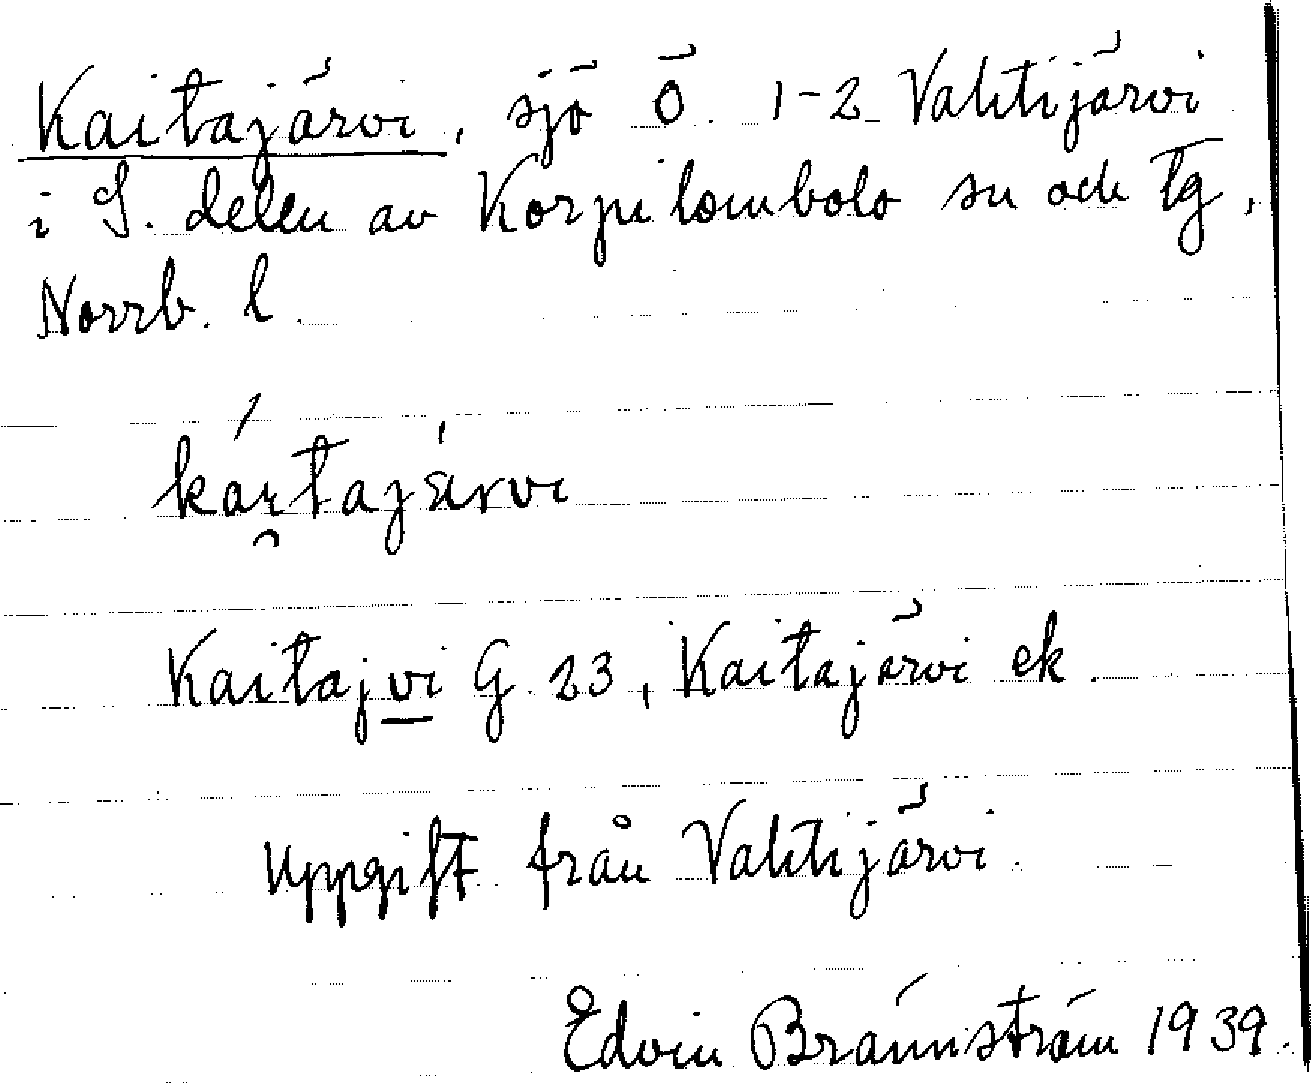 Kaitajärvi, sjö Ö. 1-2 Vahtijärvi
i S. delen av Korpilombolo sn och tg,
Norrb. l.
kái̯tajärvi
Kaitajvi G 23, Kaitajärvi ek.
Uppgift från Vahtijärvi.
Edvin Brännström 1939.